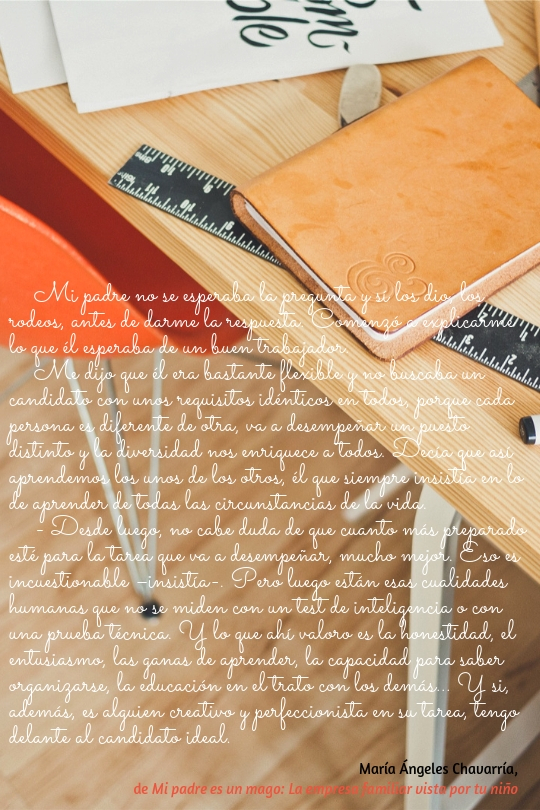 Mi padre no se esperaba la pregunta y sí los dio, los
rodeos, antes de darme la respuesta. Comenzó a explicarme
lo que él esperaba de un buen trabajador.
Me dijo que él era bastante flexible y no buscaba un
candidato con unos requisitos idénticos en todos, porque cada
persona es diferente de otra, va a desempeñar un puesto
distinto y la diversidad nos enriquece a todos. Decía que así
aprendemos los unos de los otros, él que siempre insistía en lo
de aprender de todas las circunstancias de la vida.
- Desde luego, no cabe duda de que cuanto más preparado
esté para la tarea que va a desempeñar, mucho mejor. Eso es
incuestionable –insistía-. Pero luego están esas cualidades
humanas que no se miden con un test de inteligencia o con
una prueba técnica. Y lo que ahí valoro es la honestidad, el
entusiasmo, las ganas de aprender, la capacidad para saber
organizarse, la educación en el trato con los demás... Y si,
además, es alguien creativo y perfeccionista en su tarea, tengo
delante al candidato ideal.
María Ángeles Chavarría,
de Mi padre es un mago: La empresa familiar vista por tu niño